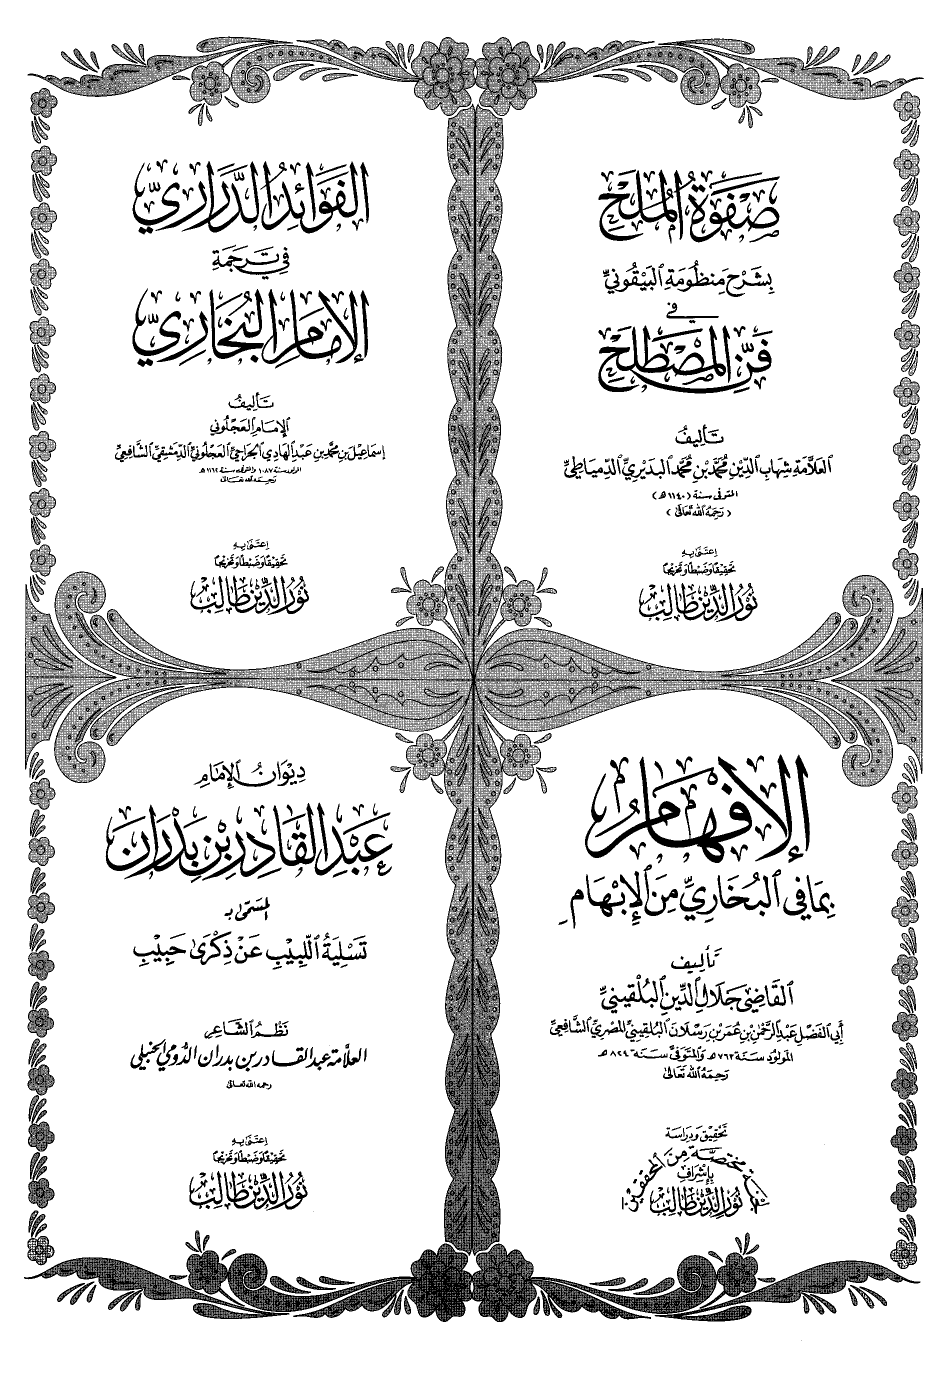 صَفْوَةُ المُلَحِ
بِشَرْحِ مَنْظُومَةِ البَيْقُونِيِّ
في
فَنِّ المُصْطَلَحِ
تَأليفُ
العَلَّامَةِ شِهَابِ الدِّينِ مُحَمَّدِ بْنِ مُحَمَّدٍ البُدَيْرِيِّ الدِّمْيَاطِيِّ
المتوفى سنة (١١٤٠ ه)
(رَحِمَهُ اللهُ تَعَالَى)
اِعْتَنَى بِهِ
تَحْقِيقًا وَضَبْطًا وَتَخْرِيجًا
نُورُ الدِّين طَالِب
الفَوَائِدُ الدَّرَارِيّ
في تَرجَمَةِ
الإمَامِ البُخَارِيِّ
تَأليفُ
الإمَامِ العَجلُوني
إسمَاعِيل بن محمَّد بن عَبد الهَادِي الجَرّاحِيّ العَجلُونيّ الدِّمَشقِيّ الشَّافِعِيّ
المولود سنة ١٠٨٧ والمتوفى سنة ١١٦٢ ه
رحمه الله تعالى
اِعْتَنَى بِهِ
تَحْقِيقًا وَضَبْطًا وَتَخْرِيجًا
نُورُ الدِّين طَالِب
الإِفْهَامُ
بِمَا فِي البُخَارِيِّ مِنَ الإِبْهَامِ
تَأليف
القَاضِي جَلَالِ الدِّينِ البُلْقِينِيِّ
أَبِي الفَضْلِ عَبْدِ الرَّحْمنِ بْنِ عُمَرَ بْنِ رَسْلَانَ البُلْقِينِيِّ المِصْرِيِّ الشَّافِعِيِّ
المَولُود سَنَة ٧٦٣ ه وَالمُتَوَفَّى سَنَة ٨٢٤ ه
رَحِمَهُ اللهُ تَعَالَى
تَحْقِيق وَدِرَاسَة
لجنة مختصّة من المحققين
بإشراف
نُورُ الدِّين طَالِب
دِيوَانُ الإمَامِ
عَبْدِ القَادِرِ بْنِ بَدْرَانَ
المسَمّى بـ
تَسْلِيَةُ اللَّبِيبِ عَنْ ذِكْرَى حَبِيبِ
نَظْمُ الشَّاعِر
العلَّامة عبد القادر بن بدران الدُّومي الحَنبلي
رحمه الله تعالى
اِعْتَنَى بِهِ
تَحْقِيقًا وَضَبْطًا وَتَخْرِيجًا
نُورُ الدِّين طَالِب